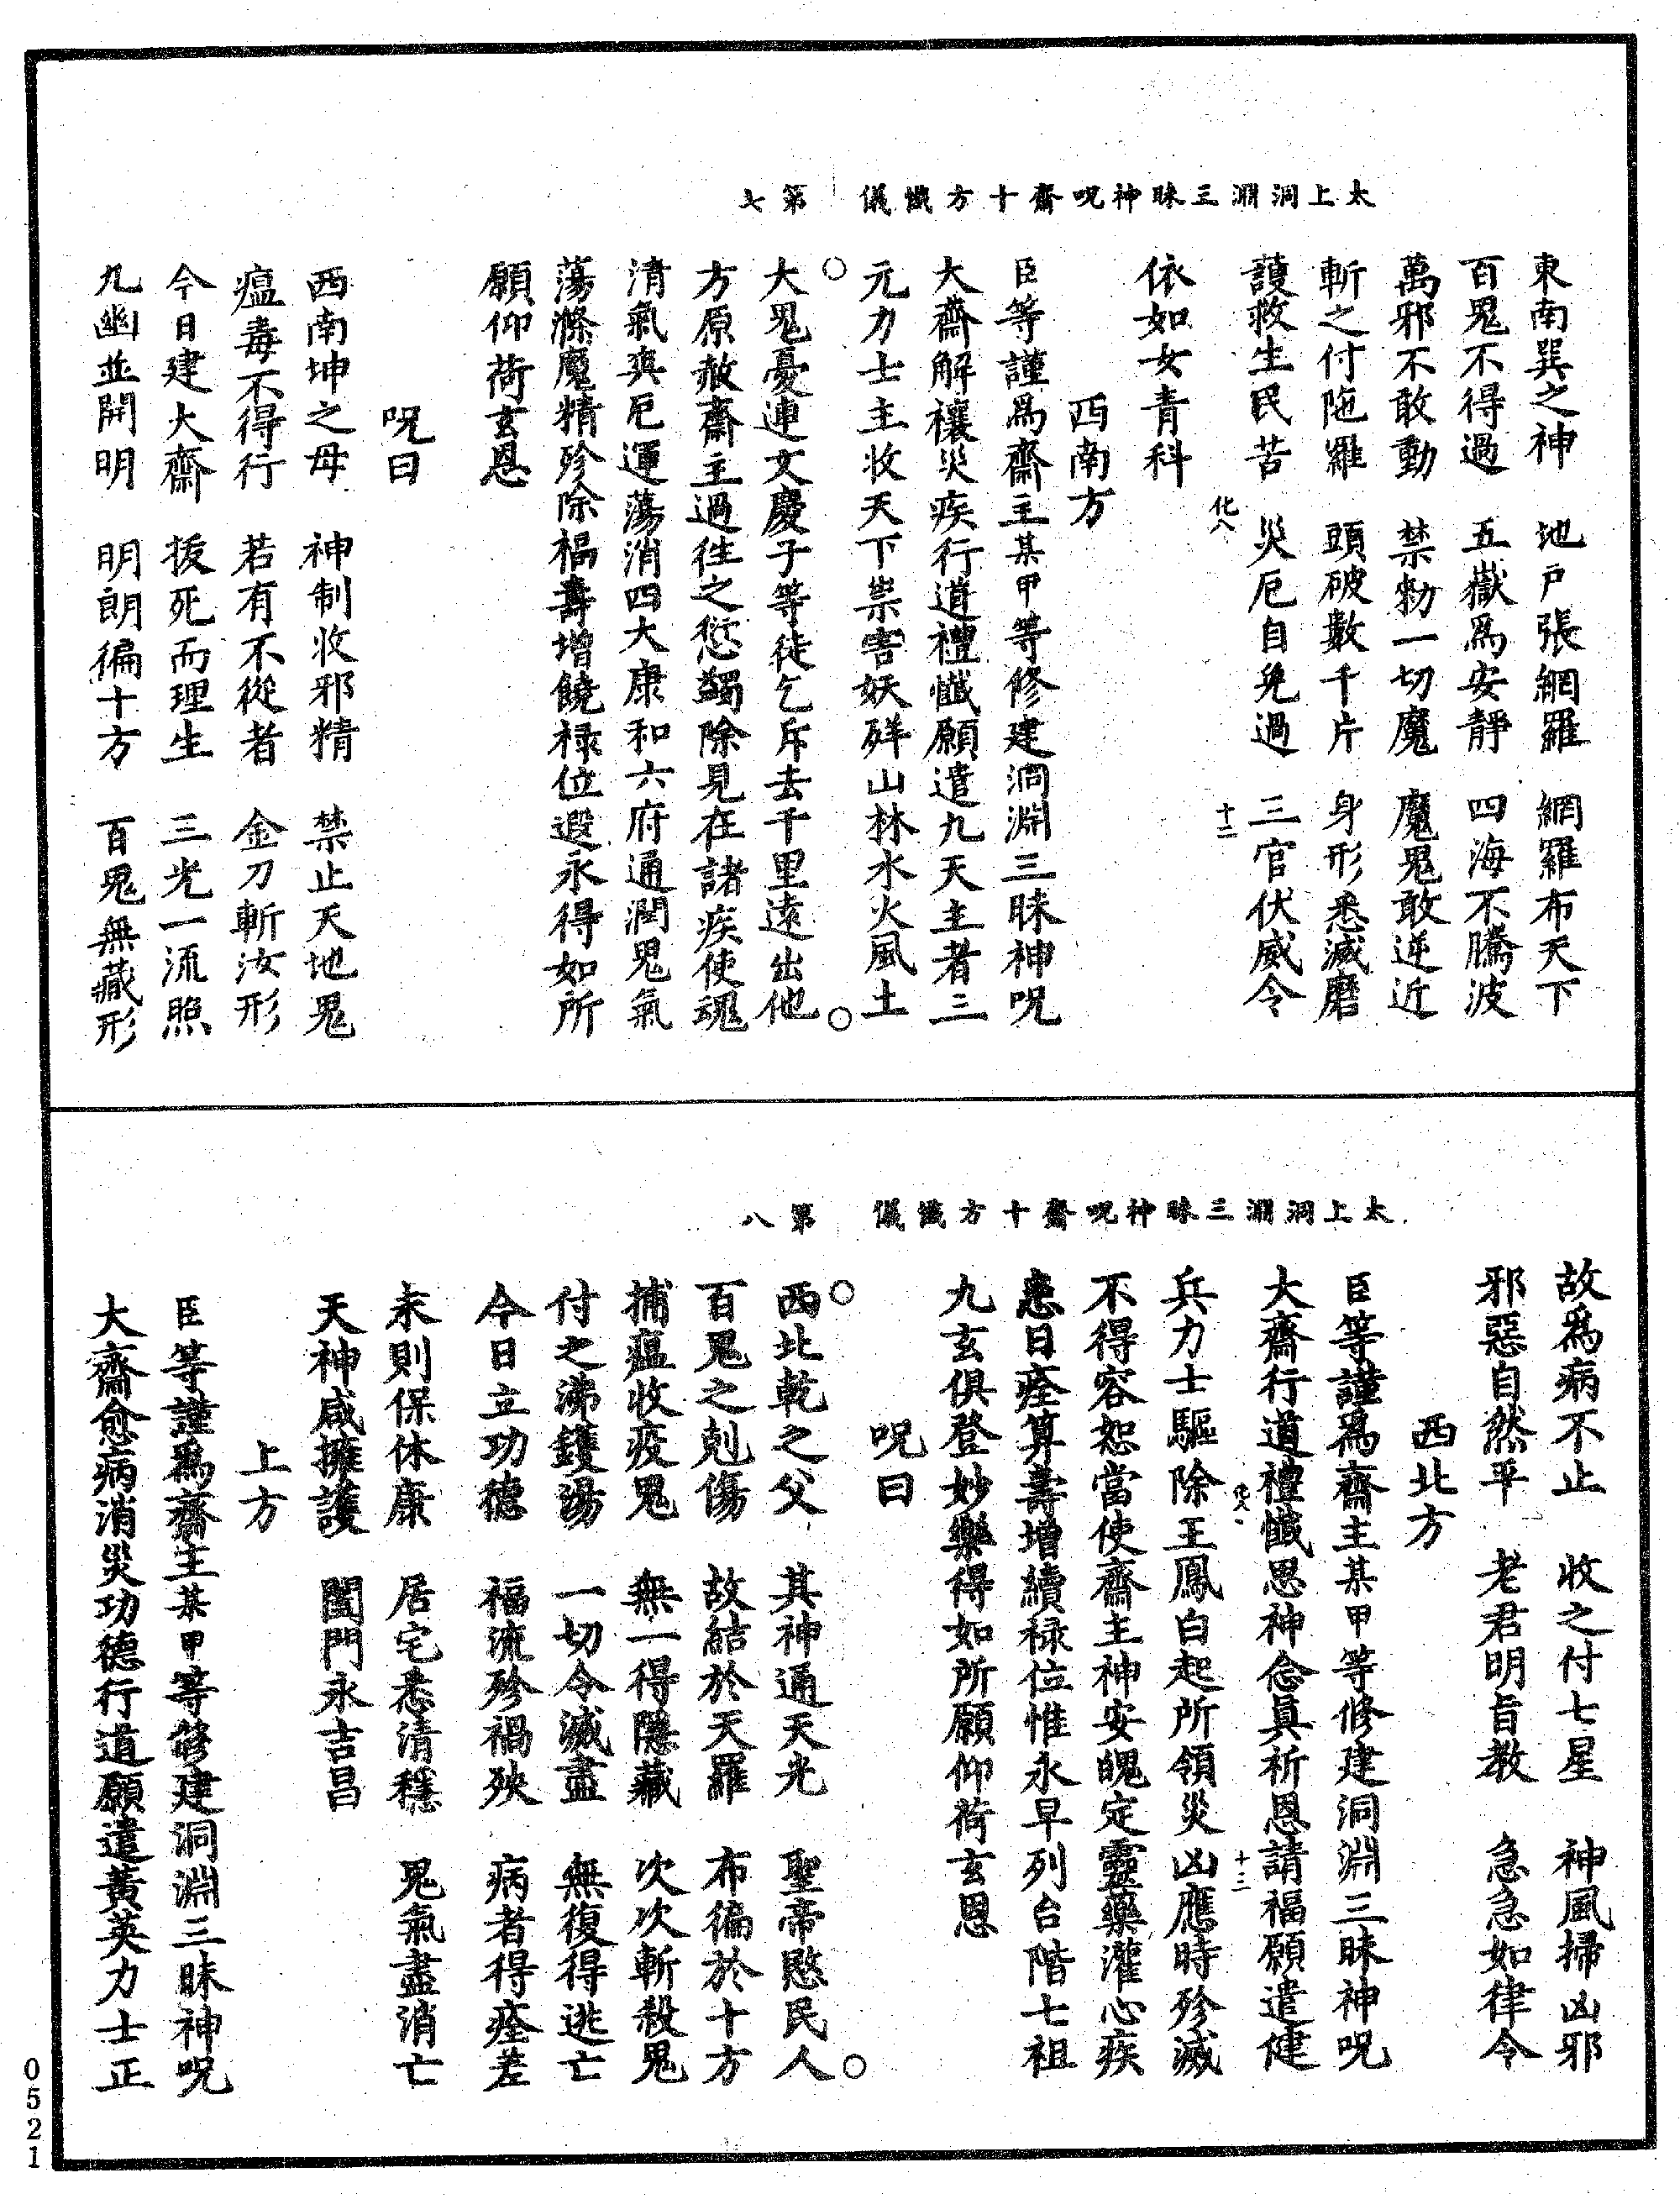 太上洞淵三昧神呪齋十方懺儀　第七
東南巽之神　地戶張網羅　網羅布天下
百鬼不得過　五嶽爲安靜　四海不騰波
萬邪不敢動　禁勑一切魔　魔鬼敢逆近
斬之付陁羅　頭破數千片　身形悉滅磨
護救生民苦　災厄自免過　三官伏威令
化八　十二
依如女青科
西南方
臣等謹爲齋主某甲等修建洞淵三昧神呪
大齋解禳災疾行道禮懺願遣九天主者三
元力士主收天下祟害妖䍧山林水火風土
大鬼憂連文慶子等徒乞斥去千里遠出他
方原赦齋主過徃之愆蠲除見在諸疾使魂
清氣爽厄運蕩消四大康和六府通潤鬼氣
蕩滌魔精殄除福壽增饒祿位遐永得如所
願仰荷玄恩
呪曰
西南坤之母　神制收邪精　禁止天地鬼
瘟毒不得行　若有不從者　金刀斬汝形
今日建大齋　拔死而理生　三光一流照
九幽並開明　明朗徧十方　百鬼無藏形
太上洞淵三昧神呪齋十方懺儀　第八
故爲病不止　收之付七星　神風掃凶邪
邪惡自然平　老君明旨教　急急如律令
西北方
臣等謹爲齋主某甲等修建洞淵三昧神呪
大齋行道禮懺思神念眞祈恩請福願遣健
化八　十三
兵力士驅除王鳳白起所領災凶應時殄滅
不得容恕當使齋主神安魄定靈藥灌心疾
患日痊算壽增續祿位惟永早列台階七祖
九玄俱登妙樂得如所願仰荷玄恩
呪曰
西北乾之父　其神通天光　聖帝愍民人
百鬼之剋傷　故結於天羅　布徧於十方
捕瘟收疫鬼　無一得隱藏　次次斬殺鬼
付之沸鑊湯　一切令滅盡　無復得逃亡
今日立功德　福流殄禍殃　病者得痊差
未則保休康　居宅悉清穩　鬼氣盡消亡
天神咸擁護　闔門永吉昌
上方
臣等謹爲齋主某甲等修建洞淵三昧神呪
大齋愈病消災功德行道願遣黃英力士正
0521